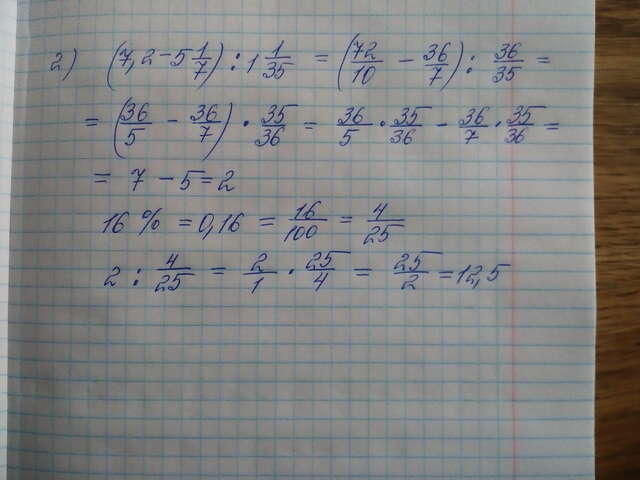 2) (7,2 - 5 1/7) : 1 1/35 = (72/10 - 36/7) : 36/35 =
= (36/5 - 36/7) · 35/36 = 36/5 · 35/36 - 36/7 · 35/36 =
= 7 - 5 = 2
16 % = 0,16 = 16/100 = 4/25
2 : 4/25 = 2/1 · 25/4 = 25/2 = 12,5